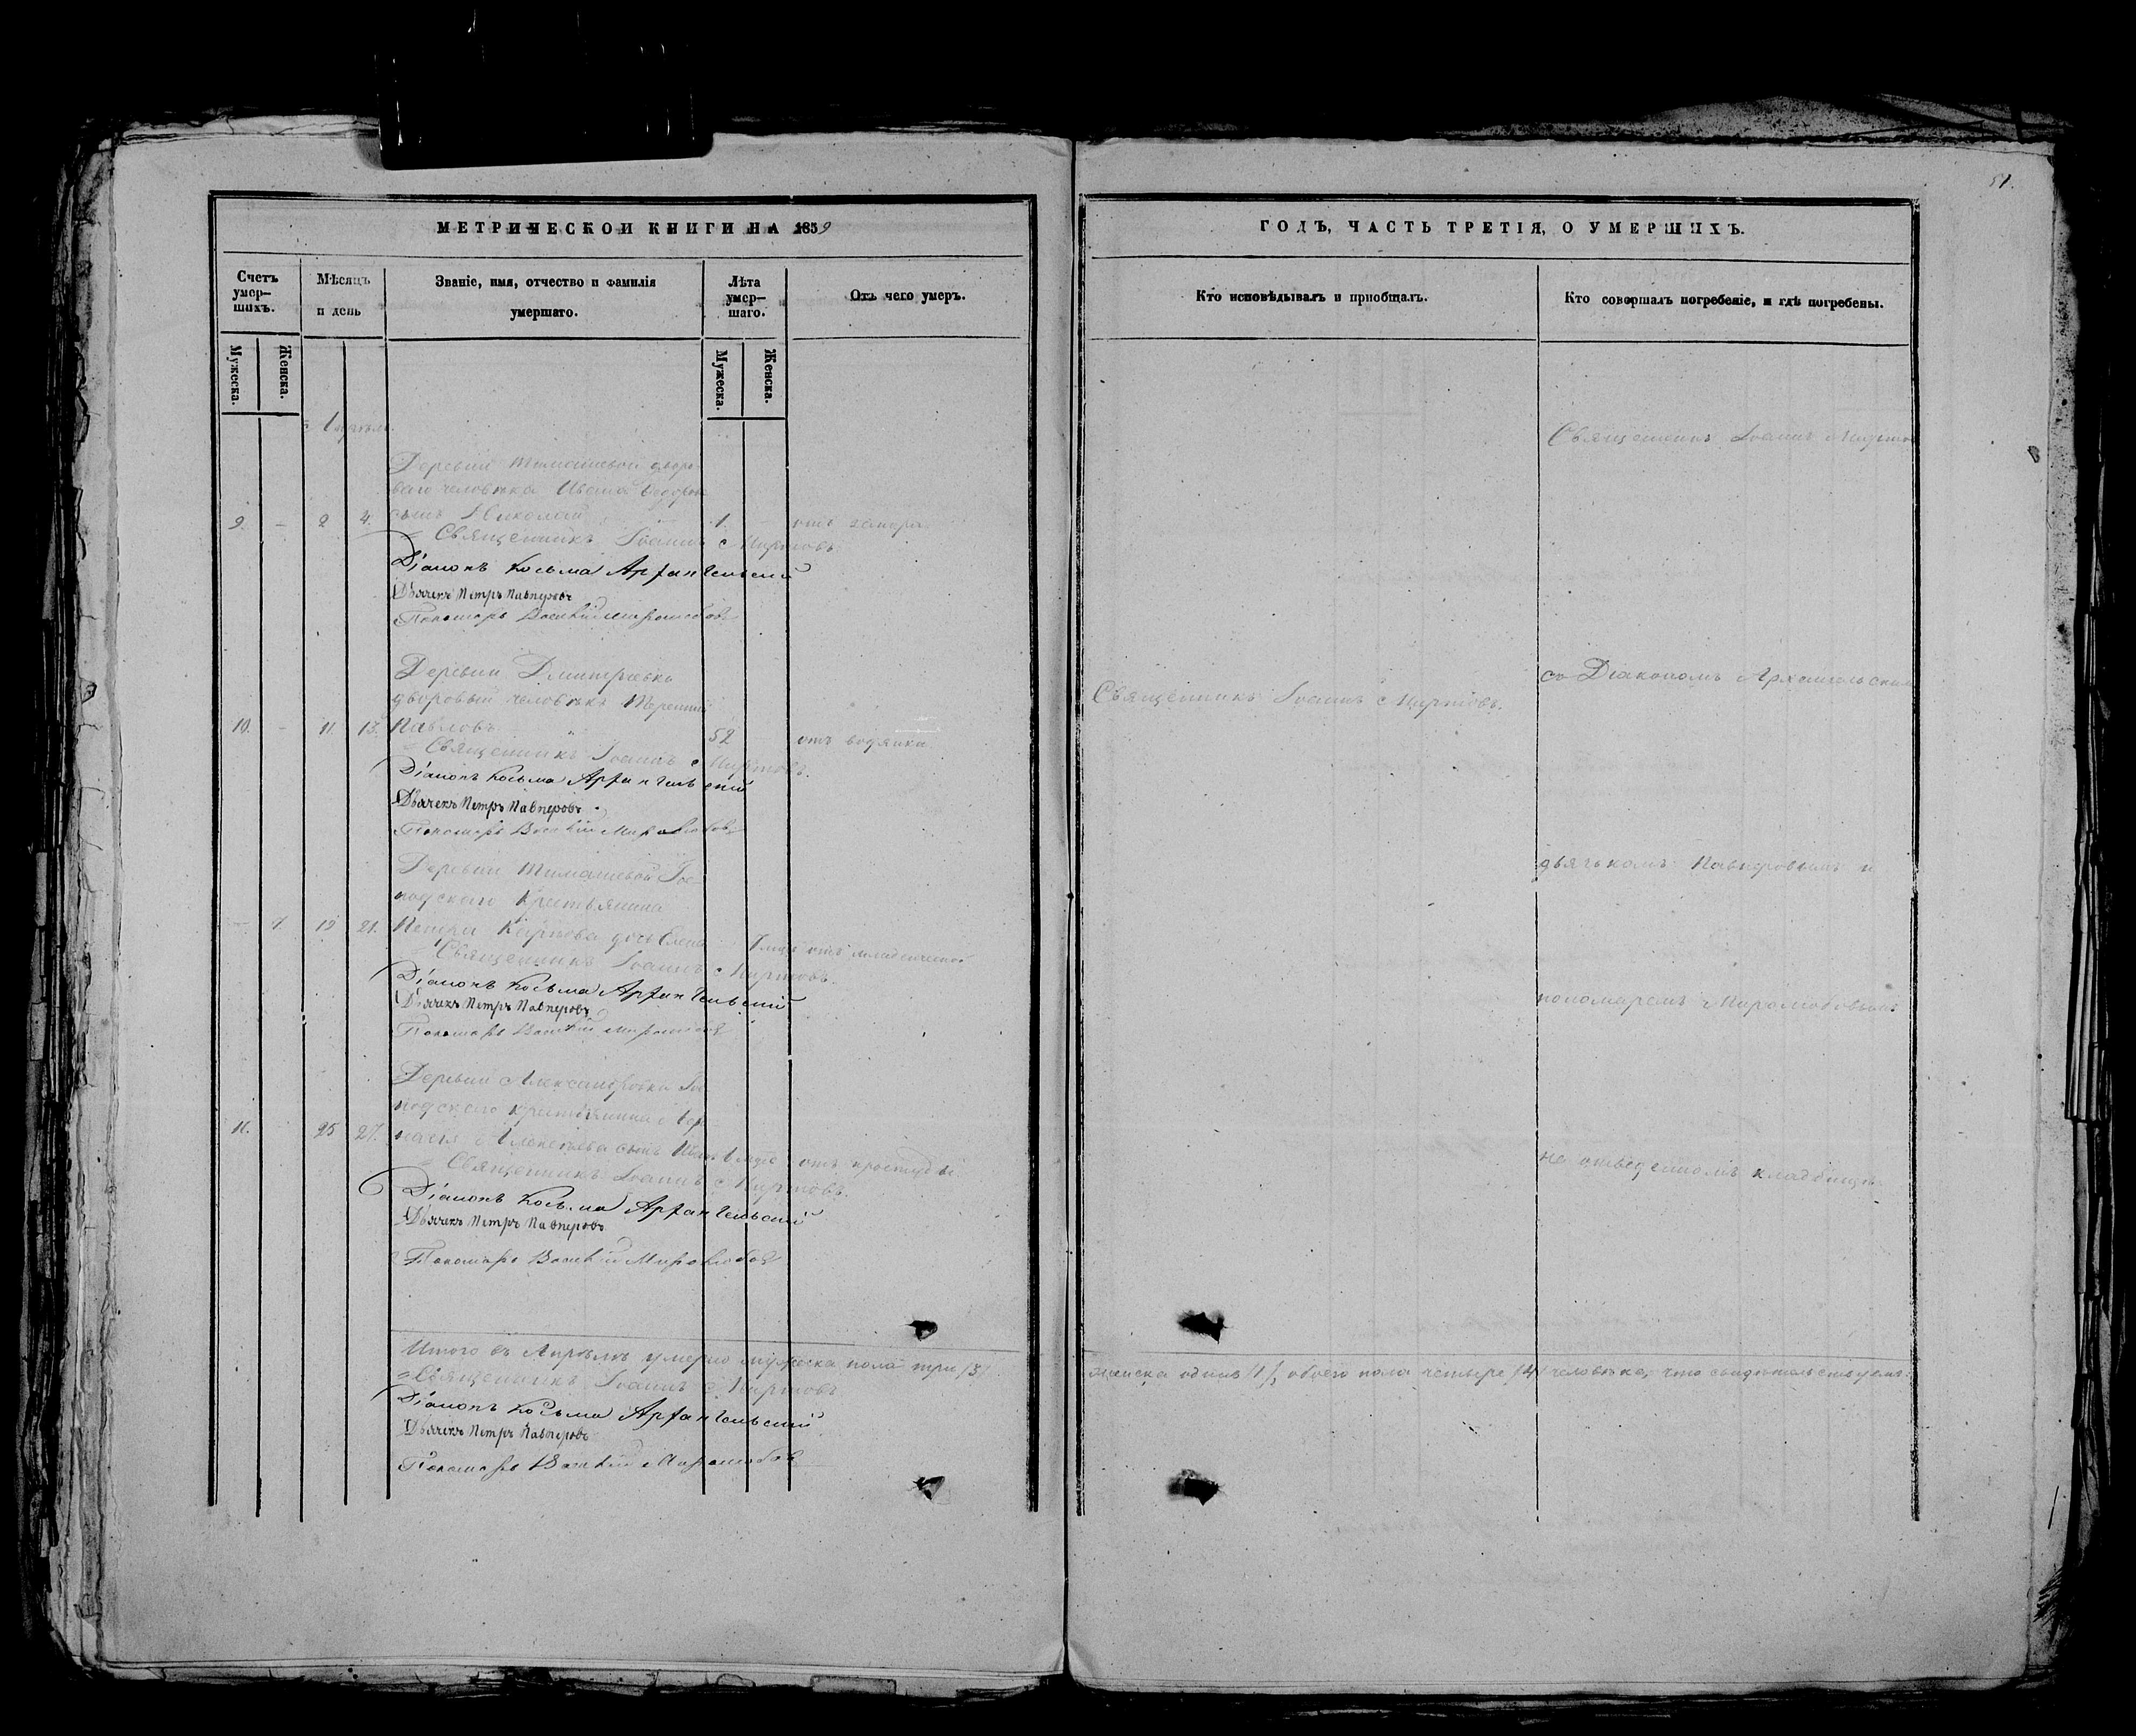 МЕТРИЧЕСКОЙ КНИГИ НА 1859
Счетъ умер-шихъ.
Мужеска.
Женска.
Мѣсяцъ и день
Званіе, имя, отчество и фамилія умершаго.
Лѣта умер-шаго.
Мужеска.
Женска.
Отъ чего умеръ.
Деревни Тимашевой дворо-
ваго человѣка Ивана
9. - 2 4. сынъ Николай 1. отъ
Священникъ Іоаннъ Миртовъ
Діаконъ Косьма Архангельскій
Дьячекъ Петръ Павперовъ
Пономарь Василій Миролюбовъ
Деревни Дмитріевки
дворовый человѣкъ Терентій
10. - 11. 13. Павловъ 52 отъ водянки
Священникъ Іоаннъ Миртовъ.
Діаконъ Косьма Архангельскій
Дьячекъ Петръ Павперовъ
Пономарь Василій Миролюбовъ
Деревни Тимашевой Гос-
подского Крестьянина
19 21. Петра Карпова дочь Елена отъ младенческой
Священникъ Іоаннъ Миртовъ.
Діаконъ Косьма Архангельскій
Дьячекъ Петръ Павперовъ
Пономарь Василій Миролюбовъ
Деревни Александровки Гос
подского крестьянина
11. 25 27. сынъ отъ простуды
Священникъ Іоаннъ Миртовъ.
Діаконъ Косьма Архангельскій
Дьячекъ Петръ Павперовъ
Пономарь Василій Миролюбовъ
Итого въ Апрѣлѣ умерло мужеска пола три /3/
Священникъ Іоаннъ Миртовъ
Діаконъ Косьма Архангельскій
Дьячекъ Петръ Павперовъ
Пономарь Василій Миролюбовъ
51.
ГОДЪ, ЧАСТЬ ТРЕТІЯ, О УМЕРШИХЪ.
Кто исповѣдывалъ и пріобщалъ.
Кто совершалъ погребеніе, и гдѣ погребены.
Священникъ Іоаннъ Миртов
Священникъ Іоаннъ Миртовъ.
со Діакономъ Архангельским
дьячькомъ Павперовымъ и
пономаремъ Миролюбовымъ
на отведенномъ кладбищѣ
женска одинъ /1/, обоего пола четыре /4/ человѣка, что свидѣтельствуемъ: